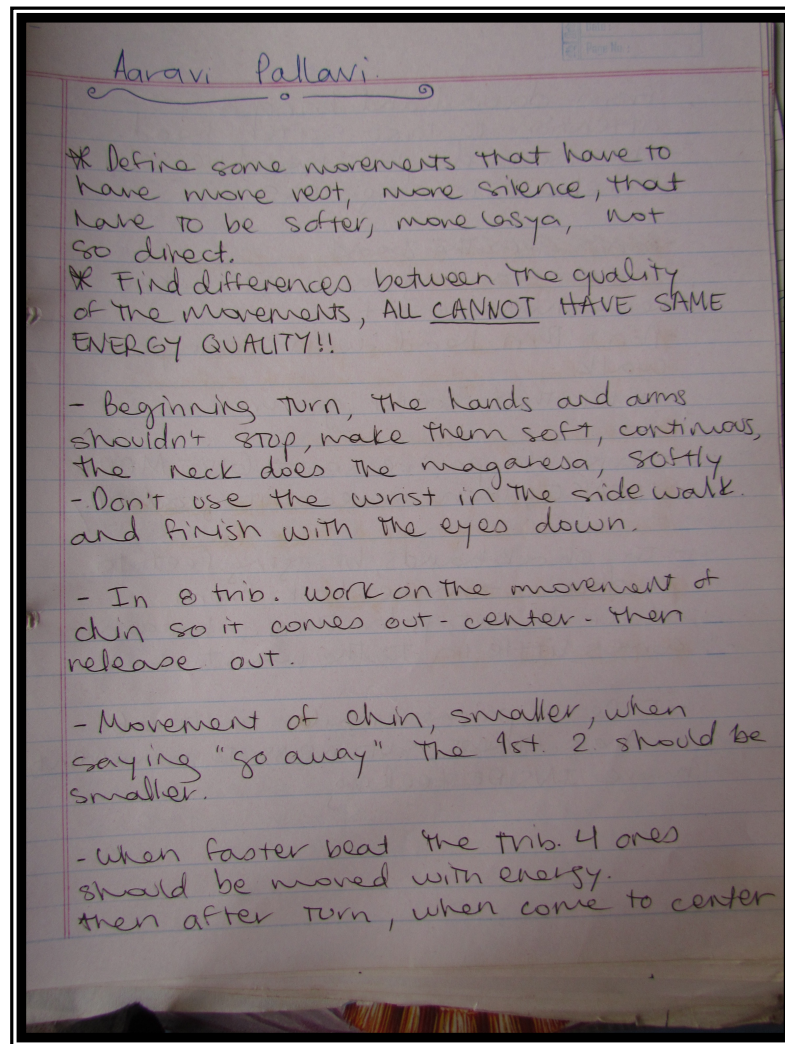 Aaravi Pallavi.
* Define some movements that have to
have more rest, more silence, that
have to be softer, more lasya, not
so direct.
* Find differences between the quality
of the movements, ALL CANNOT HAVE SAME
ENERGY QUALITY!!
- Beginning turn, the hands and arms
shouldn't stop, make them soft, continuous,
the neck does the magaresa, softly
- Don't use the wrist in the side walk.
and finish with the eyes down.
- In 8 trib. work on the movement of
chin so it comes out - center - then
release out.
- Movement of chin, smaller, when
saying "go away" the 1st. 2 should be
smaller.
- when faster beat the trib. 4 ones
should be moved with energy.
then after turn, when come to center